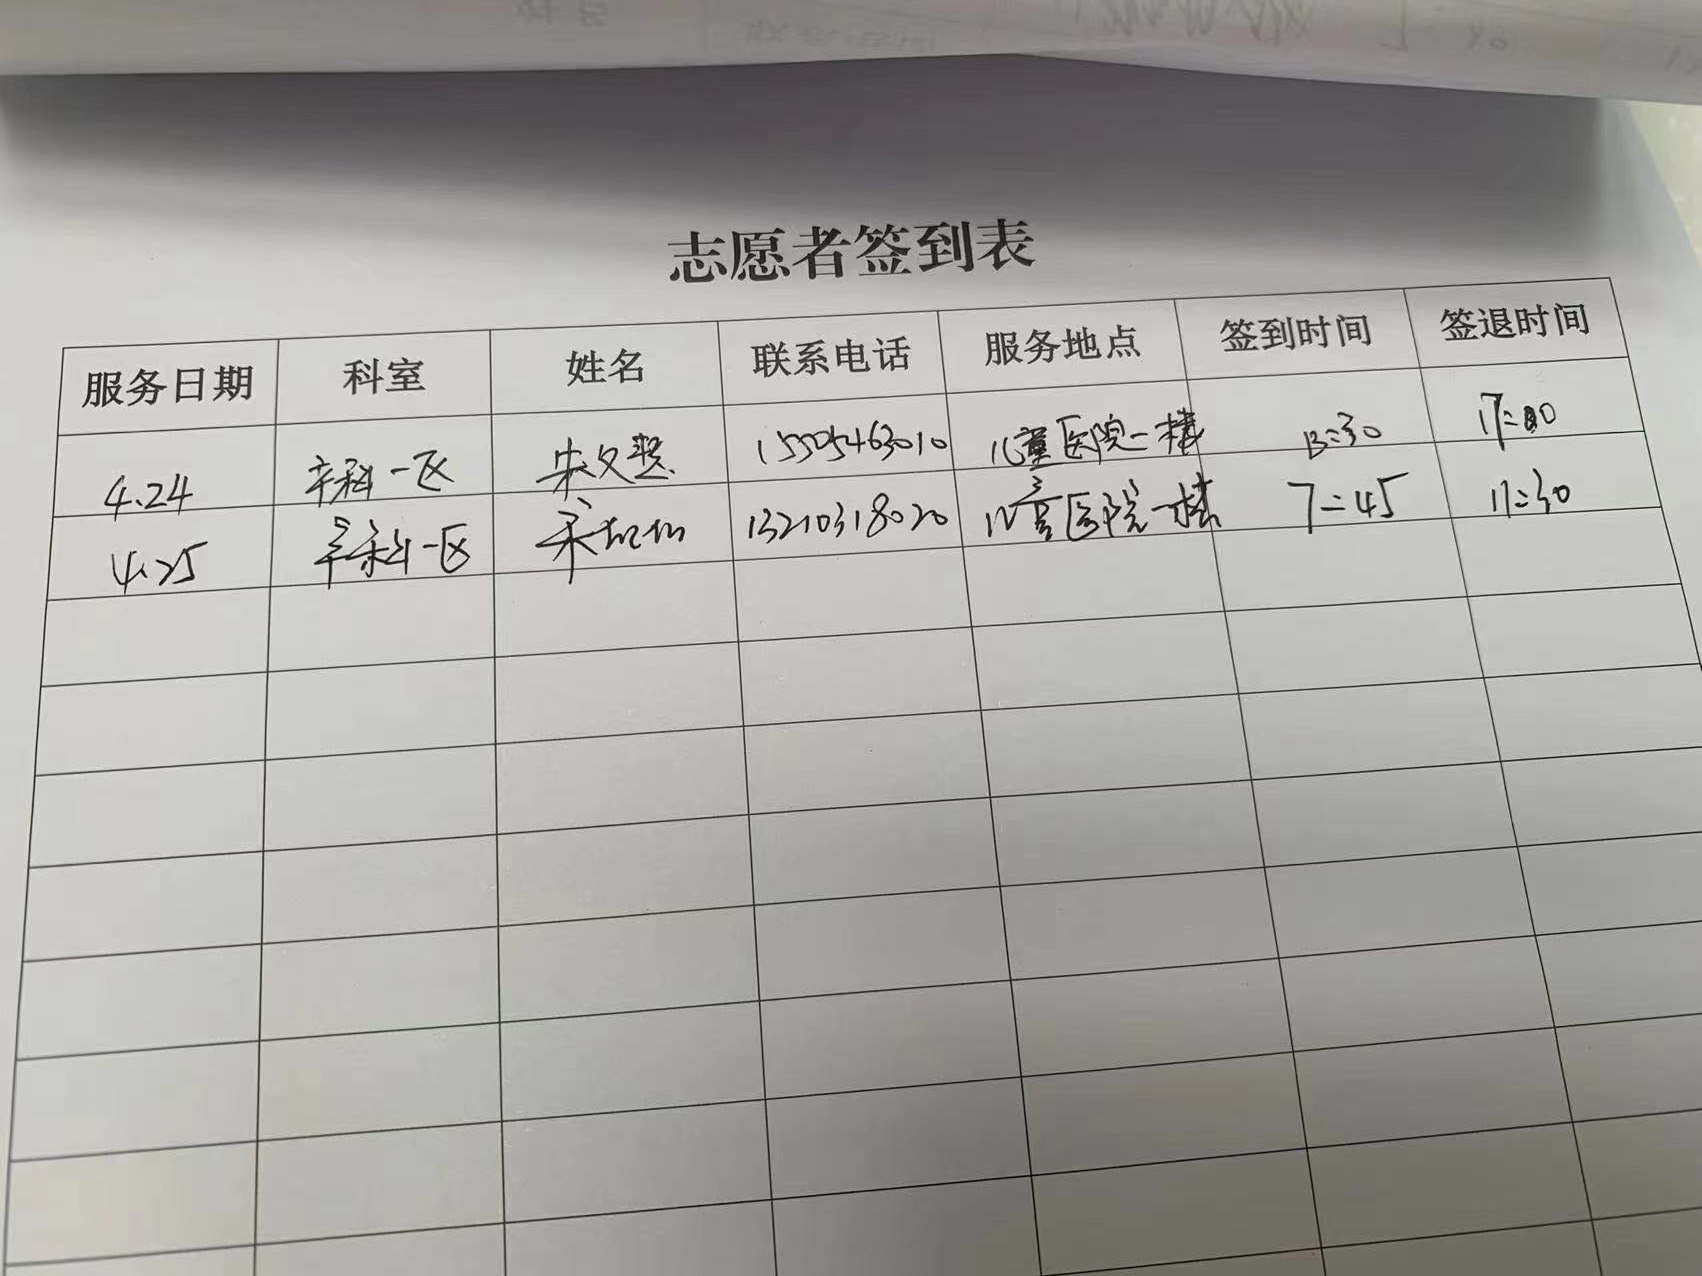 志愿者签到表
服务日期 科室 姓名 联系电话 服务地点 签到时间 签退时间
4.24 产科一区 宋文翠 15505463010 儿童医院一楼 13:30 17:00
4.25 产科一区 13210318020 儿童医院一楼 7:45 11:30